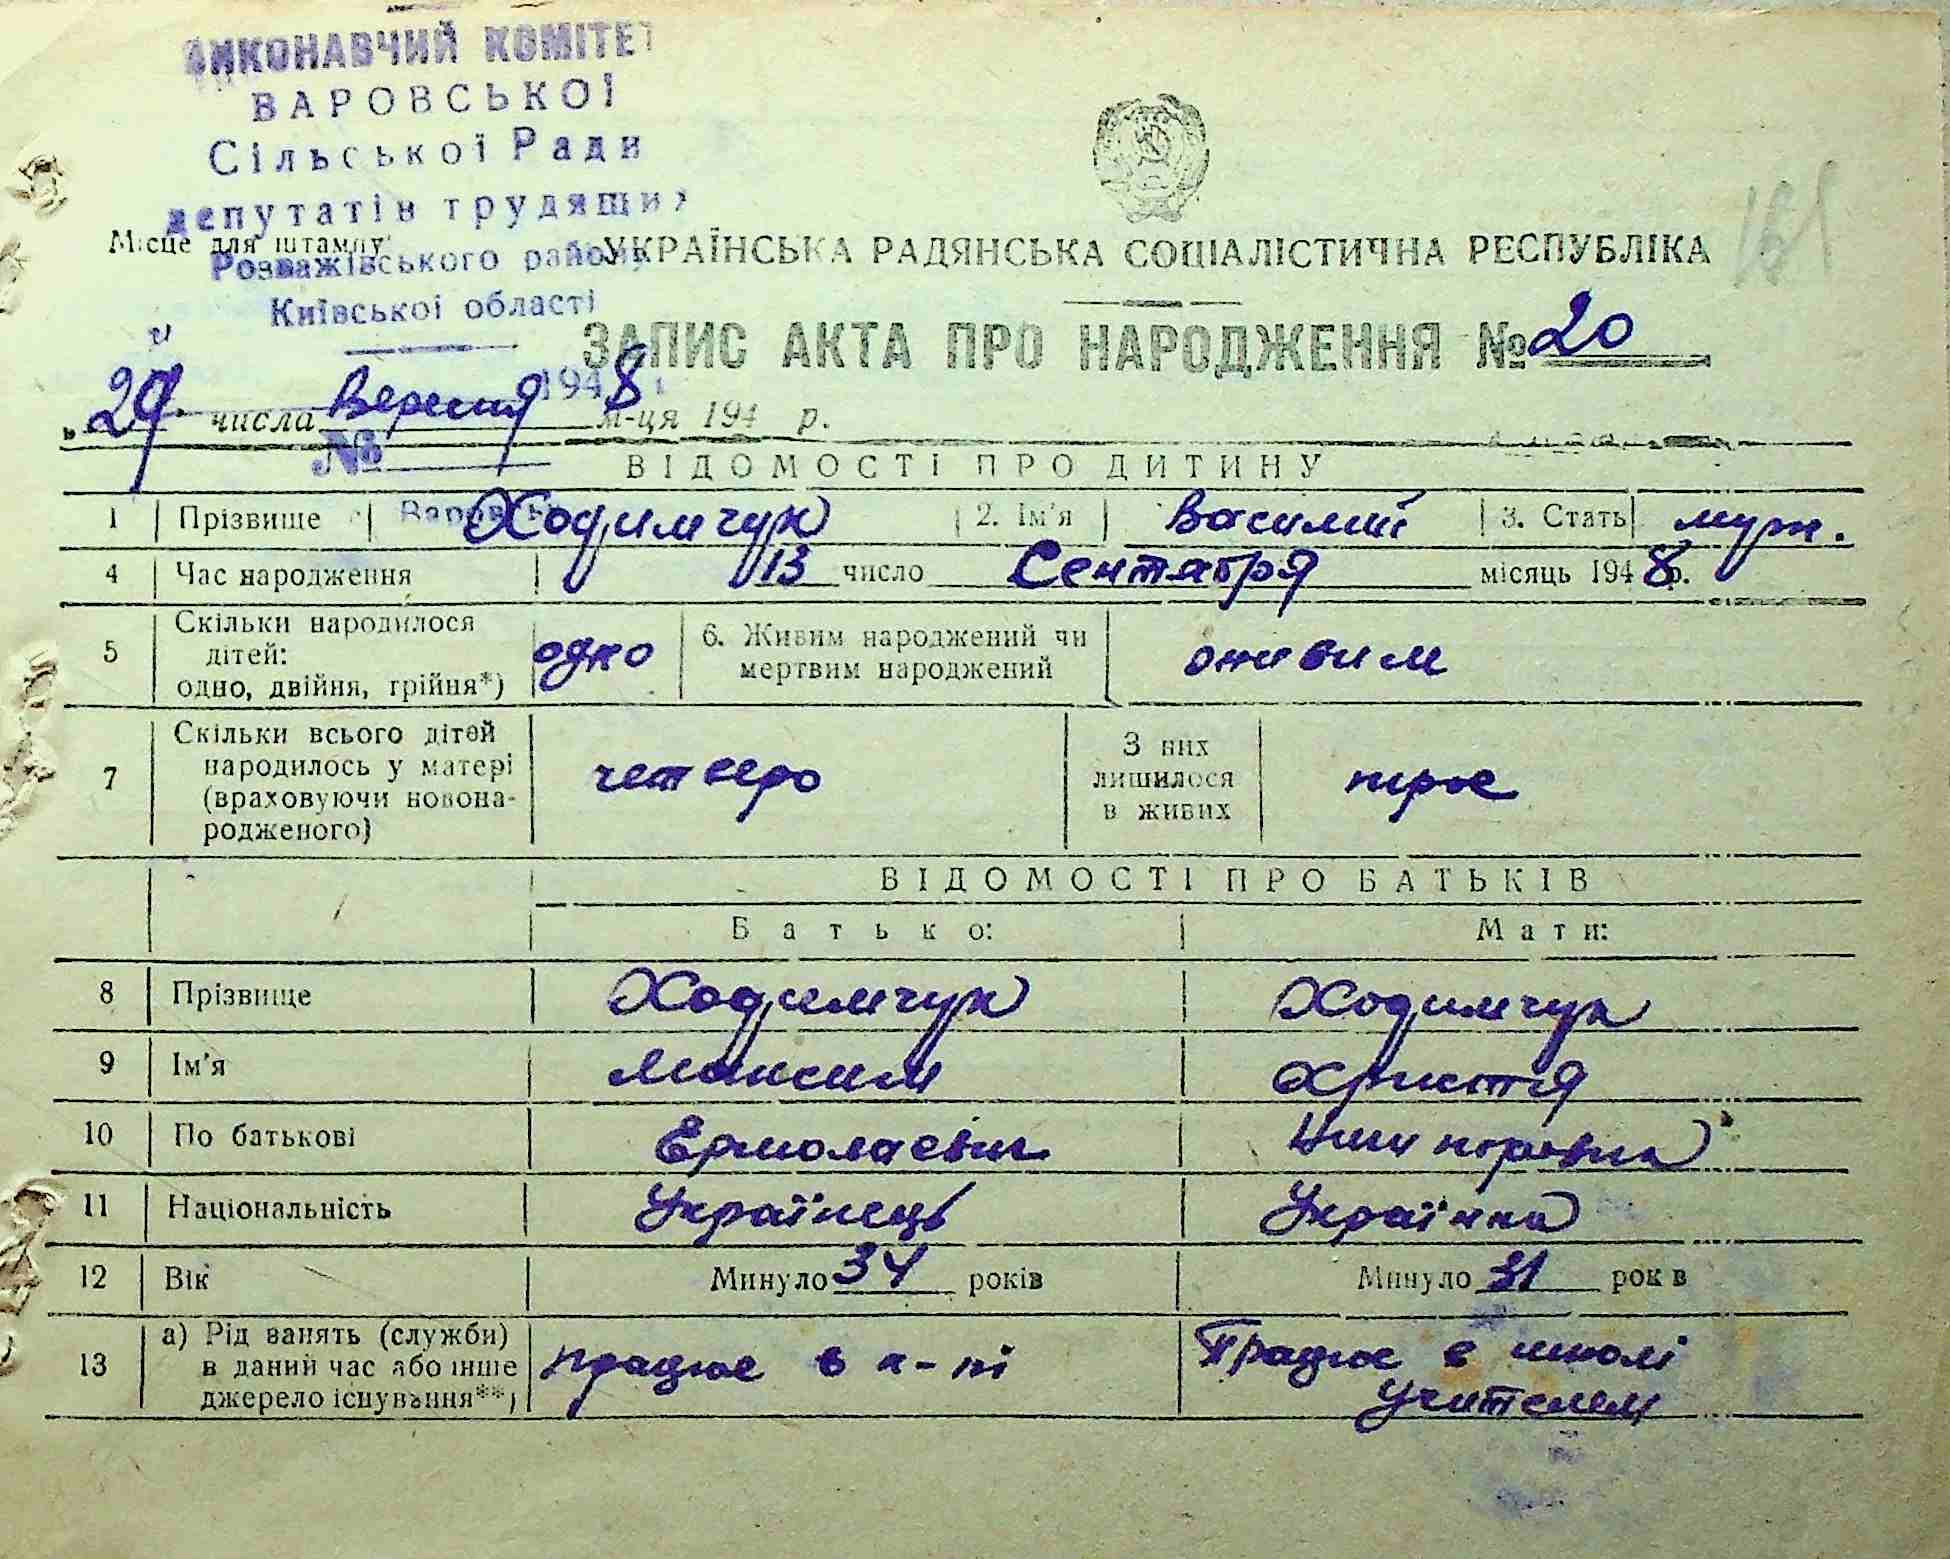 ВИКОНАВЧИЙ КОМІТЕТ
ВАРОВСЬКОЇ
Сільської Ради
депутатів трудящих
Розважівського району
Київської області
Місце для штампу
УКРАЇНСЬКА РАДЯНСЬКА СОЦІАЛІСТИЧНА РЕСПУБЛІКА
ЗАПИС АКТА ПРО НАРОДЖЕННЯ № 20
1948
„29 числа Вересня м-ця 194 р.
№
ВІДОМОСТІ ПРО ДИТИНУ
1 Прізвище Ходимчук 2. Ім'я Василий 3. Стать муж.
4 Час народження 13 число Сентября місяць 1948 р.
5 Скільки народилося дітей: одно, двійня, трійня*) одно 6. Живим народжений чи мертвим народжений живим
7 Скільки всього дітей народилось у матері (враховуючи новона-родженого) четверо З них лишилося в живих троє
ВІДОМОСТІ ПРО БАТЬКІВ
Батько: Мати:
8 Прізвище Ходимчук Ходимчук
9 Ім'я Максим Христя
10 По батькові Ермолаєвич
11 Національність Українець Українка
12 Вік Минуло 34 років Минуло 31 років
13 а) Рід занять (служби) в даний час або інше джерело існування**) працює в к-пі Працює в школі учителем